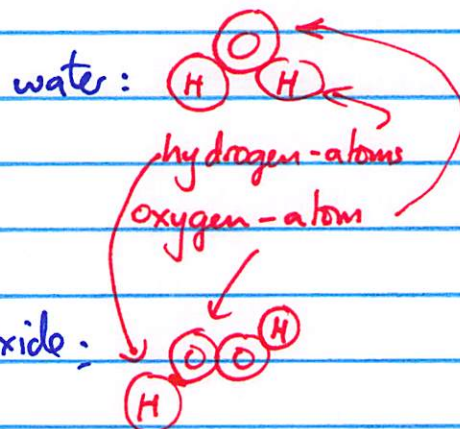 O
water: H H
hydrogen-atoms
oxygen-atom
H
xide: O O
H